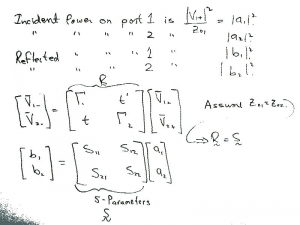 Incident Power on port 1 is |V1+|²/Z01 = |a1|²
" " " " 2 " |a2|²
Reflected " " " 1 " |b1|²
" " " " 2 " |b2|²
R
[V̄1- V̄2-] = [Γ1 t' t Γ2] [V̄1+ V̄2+] Assume Z01=Z02.
⇒ R = S
[b1 b2] = [S11 S12 S21 S22] [a1 a2]
S-Parameters
S